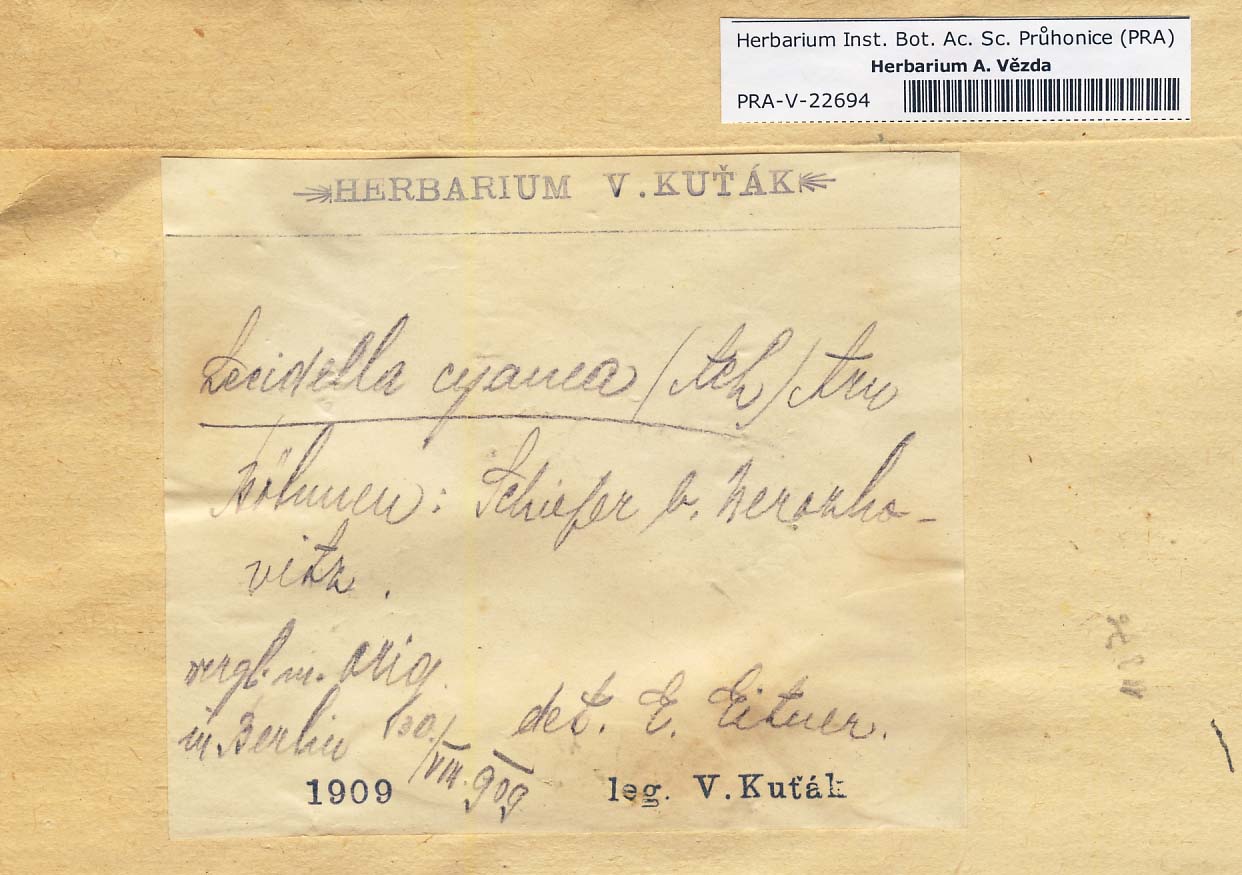 Herbarium Inst. Bot. Ac. Sc. Průhonice (PRA)
Herbarium A. Vězda
PRA-V-22694
HERBARIUM V. KUŤÁK
Lecidella cyanea (Ach) Arn
Böhmen: Schiefer b. Nerozho-
vitz.
vergl. m. orig.
in Berlin 30./VIII. 909
det. E. Eitner.
1909 leg. V. Kuťák